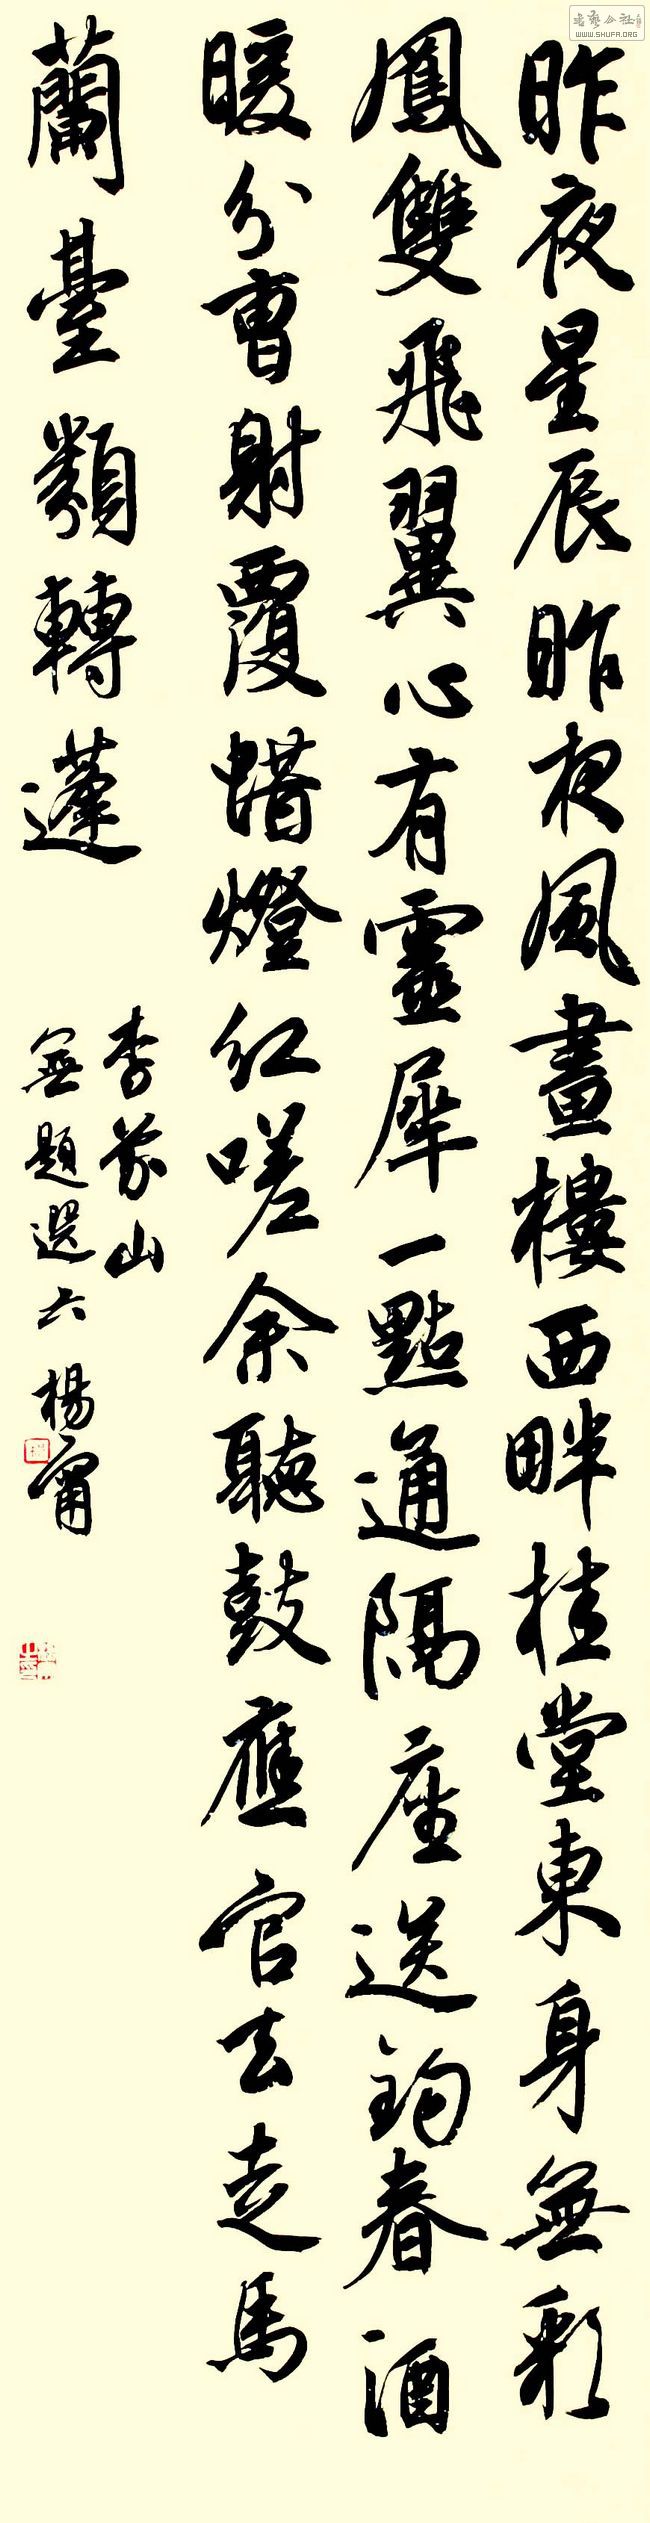 昨夜星辰昨夜風畫樓西畔桂堂東身無彩
鳳雙飛翼心有靈犀一點通隔座送鈎春酒
暖分曹射覆蜡燈紅嗟余聽鼓應官去走馬
蘭臺類轉蓬
李義山
無題選六 楊甯
書藝公社
WWW.SHUFA.ORG